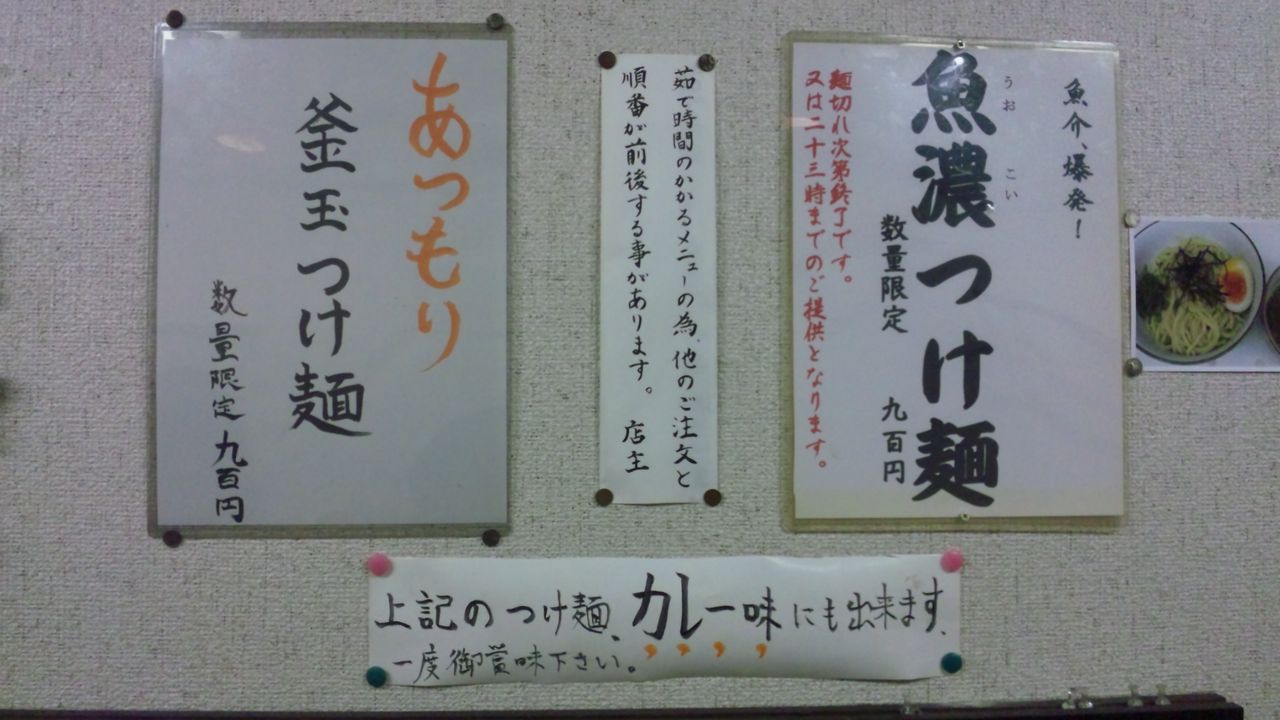 魚介、爆発!
魚濃つけ麺
うお
こい
数量限定 九百円
麺切れ次第終了です。
又は二十三時までのご提供となります。
茹で時間のかかるメニューの為、他のご注文と
順番が前後する事があります。 店主
あつもり
釜玉つけ麺
数量限定九百円
上記のつけ麺、カレー味にも出来ます、
一度御賞味下さい。